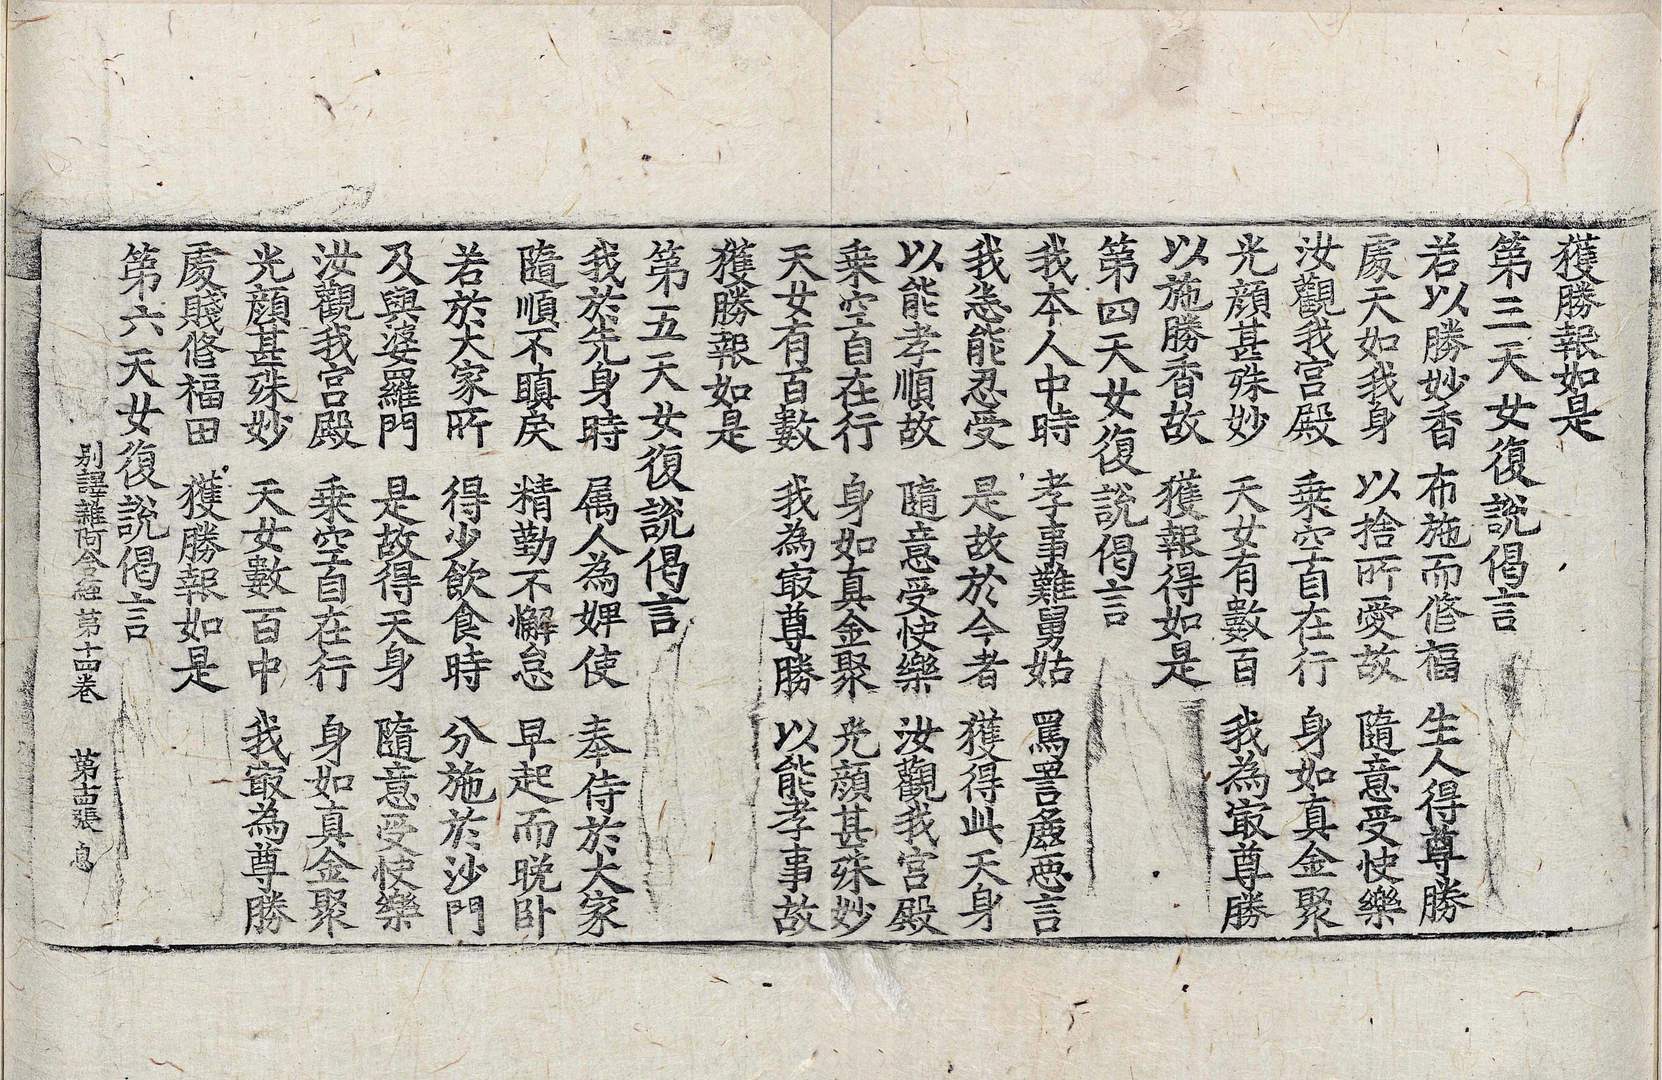 獲勝報如是
第三天女復說偈言
若以勝妙香 布施而修福 生人得尊勝
處天如我身 以捨所愛故 隨意受快樂
汝觀我宮殿 乗空自在行 身如真金聚
光顔甚殊妙 天女有數百 我為冣尊勝
以施勝香故 獲報得如是
第四天女復說偈言
我本人中時 孝事難舅姑 罵詈麁惡言
我悉能忍受 是故於今者 獲得此天身
以能孝順故 隨意受快樂 汝觀我宮殿
乗空自在行 身如真金聚 光顔甚殊妙
天女有百數 我為冣尊勝 以能孝事故
獲勝報如是
第五天女復說偈言
我於先身時 属人為婢使 奉侍於大家
隨順不瞋戾 精勤不懈怠 早起而晚卧
若於大家所 得少飲食時 分施於沙門
及與婆羅門 是故得天身 隨意受快樂
汝觀我宮殿 乗空自在行 身如真金聚
光顔甚殊妙 天女數百中 我冣為尊勝
處賤修福田 獲勝報如是
第六天女復說偈言
別譯雜阿含經第十四卷 第十四張 息